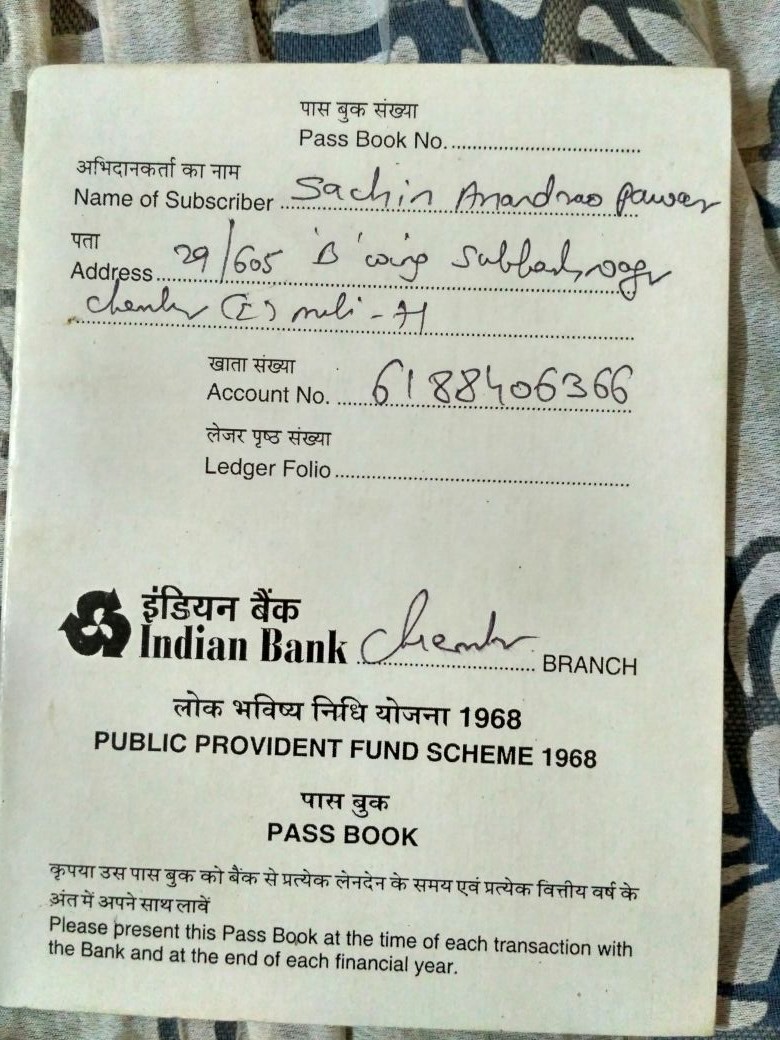 पास बुक संख्या
Pass Book No. ..............................
अभिदानकर्ता का नाम
Name of Subscriber Sachin Anandrao Pawar
पता
Address 29/605 'B' wing Subhashnagar
Chembur (E) - 71
खाता संख्या
Account No. 6188406366
लेजर पृष्ठ संख्या
Ledger Folio ..............................
इंडियन बैंक
Indian Bank Chembur BRANCH
लोक भविष्य निधि योजना 1968
PUBLIC PROVIDENT FUND SCHEME 1968
पास बुक
PASS BOOK
कृपया उस पास बुक को बैंक से प्रत्येक लेनदेन के समय एवं प्रत्येक वित्तीय वर्ष के
अंत में अपने साथ लावें
Please present this Pass Book at the time of each transaction with
the Bank and at the end of each financial year.